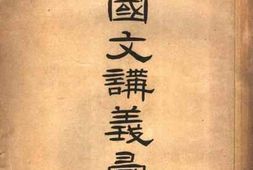 國文講義